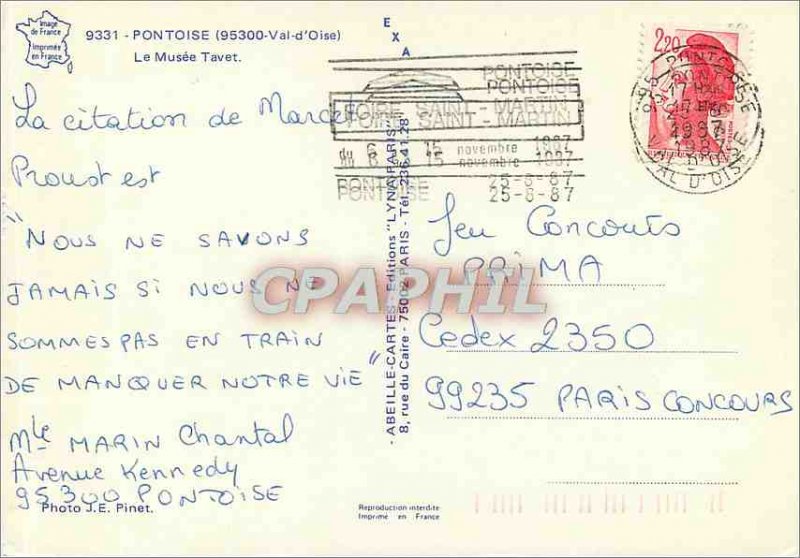 Image
de France
Imprimée
en France
9331 - PONTOISE (95300-Val-d'Oise)
Le Musée Tavet.
EXA
PONTOISE
PONTOISE
FOIRE SAINT - MARTIN
FOIRE SAINT - MARTIN
du 6 15 novembre 1987
15 novembre 1987
PONTOISE 25-8-87
PONTOISE 25-8-87
2,20
95 PONTOISE
VAL D'OISE
La citation de Marcel
Proust est
"NOUS NE SAVONS
JAMAIS SI NOUS NE
SOMMES PAS EN TRAIN
DE MANQUER NOTRE VIE"
Mlle MARIN Chantal
Avenue Kennedy
95300 PONTOISE
Photo J.E. Pinet.
- ABEILLE-CARTES - Editions "LYNA-PARIS" -
8, rue du Caire - 75002 PARIS - Tél. 236.41.28
Jeu Concours
PRIMA
Cedex 2350
99235 PARIS CONCOURS
Reproduction interdite
Imprimé en France
CPAPHIL